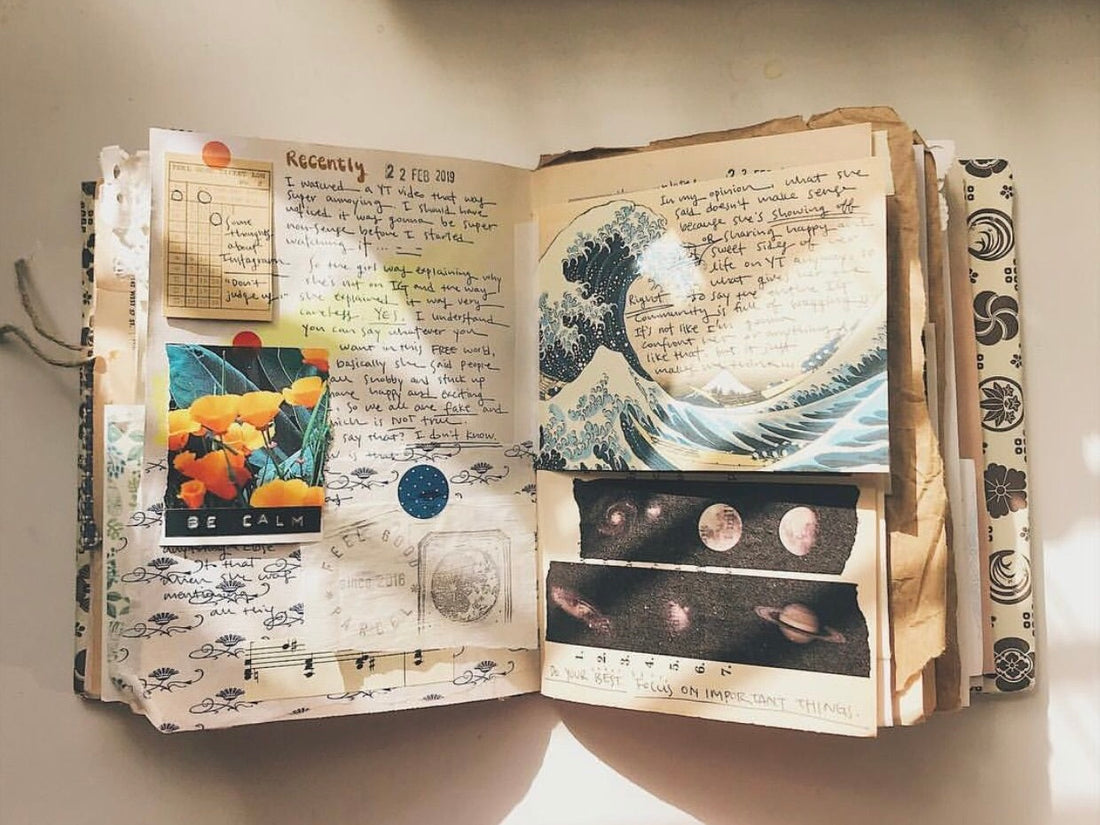 Recently 22 FEB 2019
I watched a YT video that was
super annoying. I should have
noticed it was gonna be super
nonsense before I started
watching it
Some
thoughts
about
Instagram
"Don't
judge
So the girl was explaining why
she's not on IG and the way
she explained it was very
careless. YES, I understand
you can say whatever you
want in this FREE world,
basically she said people
are snobby and stuck up
have happy and exciting
. So we all are fake and
which is NOT true.
say that? I don't know.
is that
BE CALM
anything close
to that
when she was
mentioning
all this
FEEL GOOD
since 2016
In my opinion, what she
said doesn't make sense
because she's showing off
or sharing happy and
sweet sides of
life on YT
what
Right to say the entire IG
community is full of
It's not like I'm gonna
confront her or anything
like that but it just
1. 2. 3. 4. 5. 6. 7.
DO YOUR BEST Focus ON IMPORTANT THINGS.